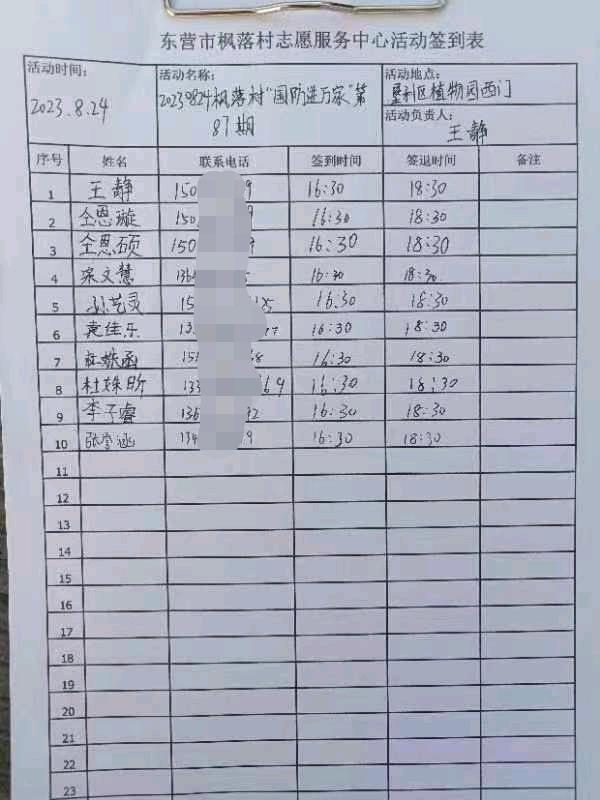 东营市枫落村志愿服务中心活动签到表
活动时间: 活动名称: 活动地点:
2023.8.24 20230824枫落村"国防进万家"第 垦利区植物园西门
87期 活动负责人:
王静
序号 姓名 联系电话 签到时间 签退时间 备注
1 王静 150 9 16:30 18:30
2 仝恩璇 150 9 16:30 18:30
3 仝恩硕 150 9 16:30 18:30
4 梁文慧 136 16:30 18:30
5 艺灵 15 16:30 18:30
6 袁佳乐 13 16:30 18:30
7 杜姝函 15 8 16:30 18:30
8 杜姝昕 133 69 16:30 18:30
9 李子睿 136 92 16:30 18:30
10 张誉涵 134 9 16:30 18:30
11
12
13
14
15
16
17
18
19
20
21
22
23